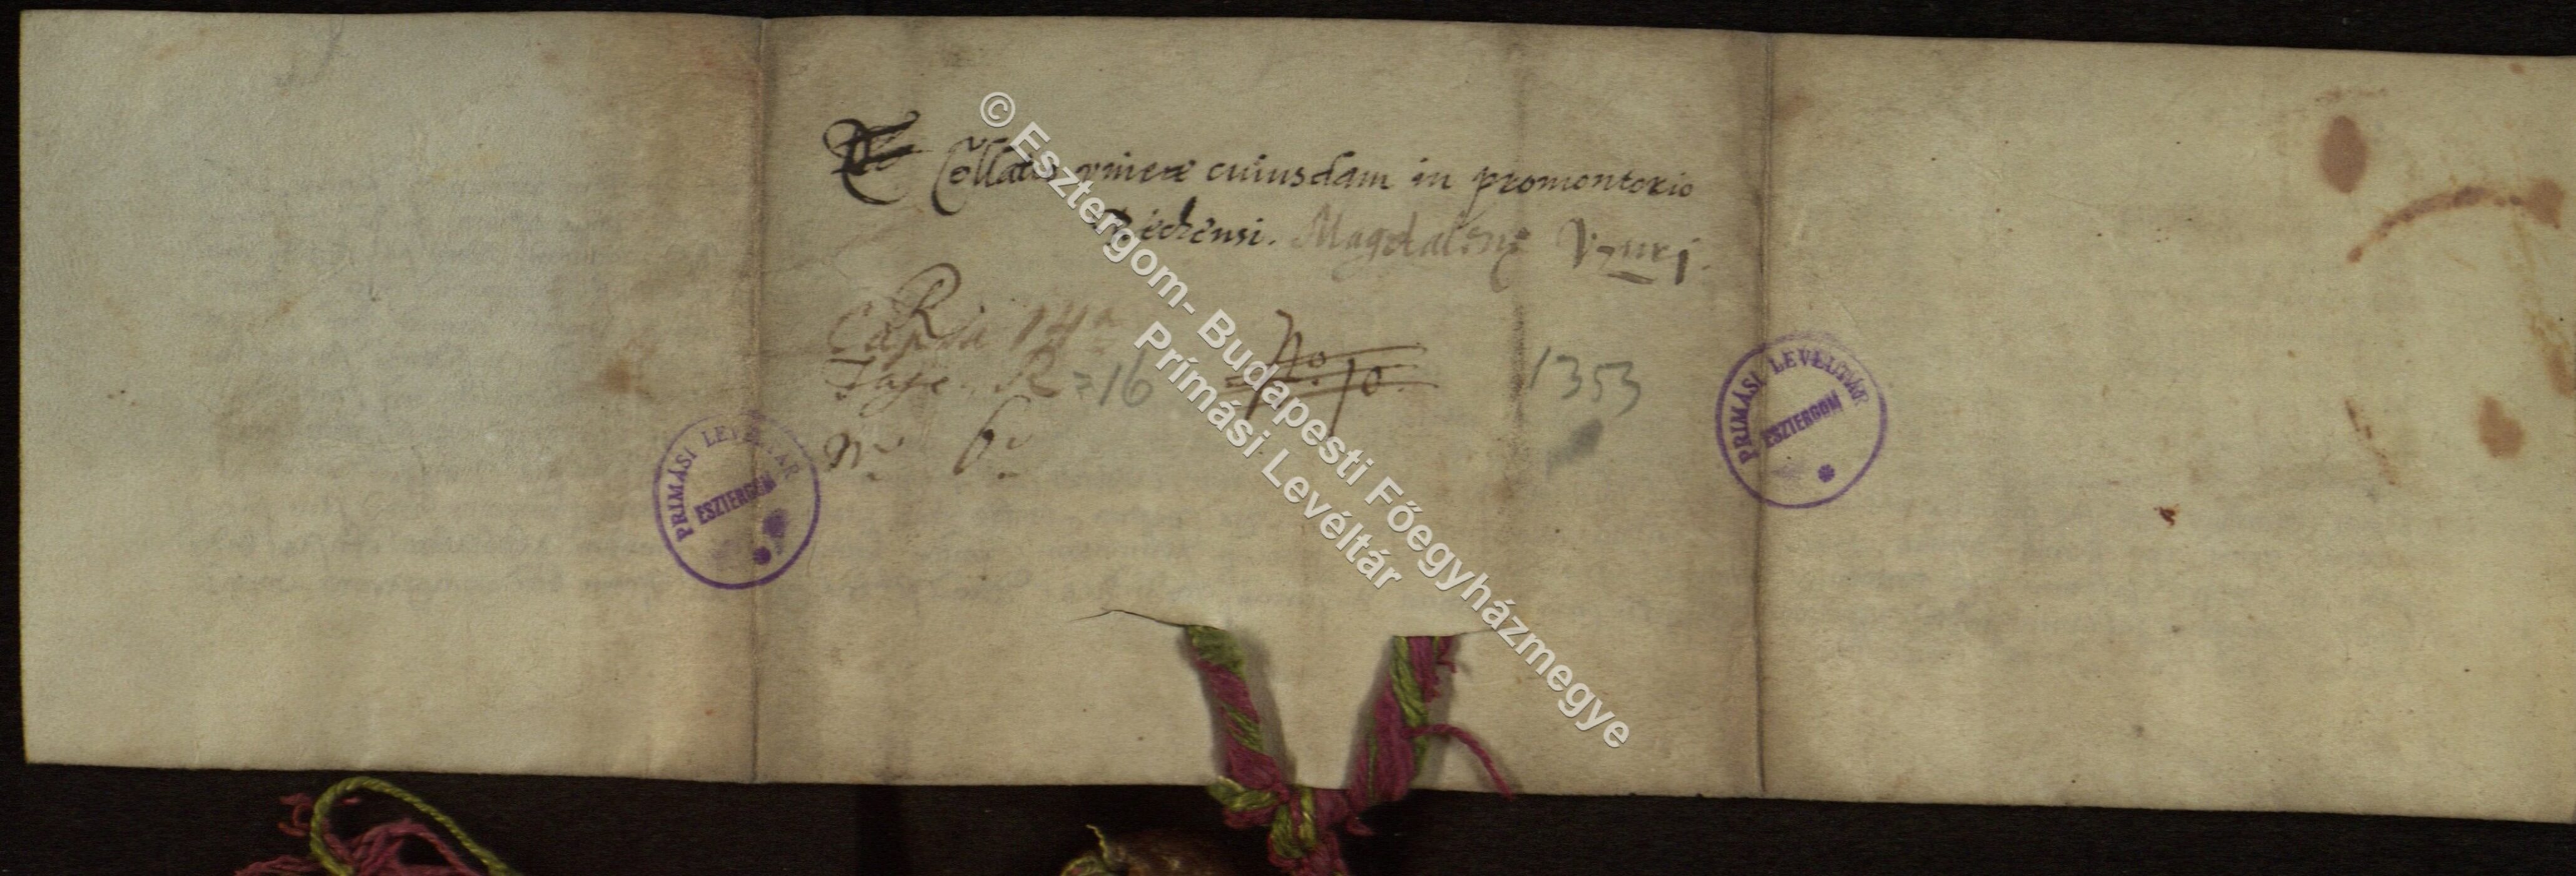 Collatio vineae cuiusdam in promontorio
Bechensi. Magdalenę
R
Capsa 14a
Fasc. R=16 No. 10. 1353
No 6
PRIMÁSI LEVÉLTÁR
ESZTERGOM
PRIMÁSI LEVÉLTÁR
ESZTERGOM
© Esztergom- Budapesti Főegyházmegye
Prímási Levéltár